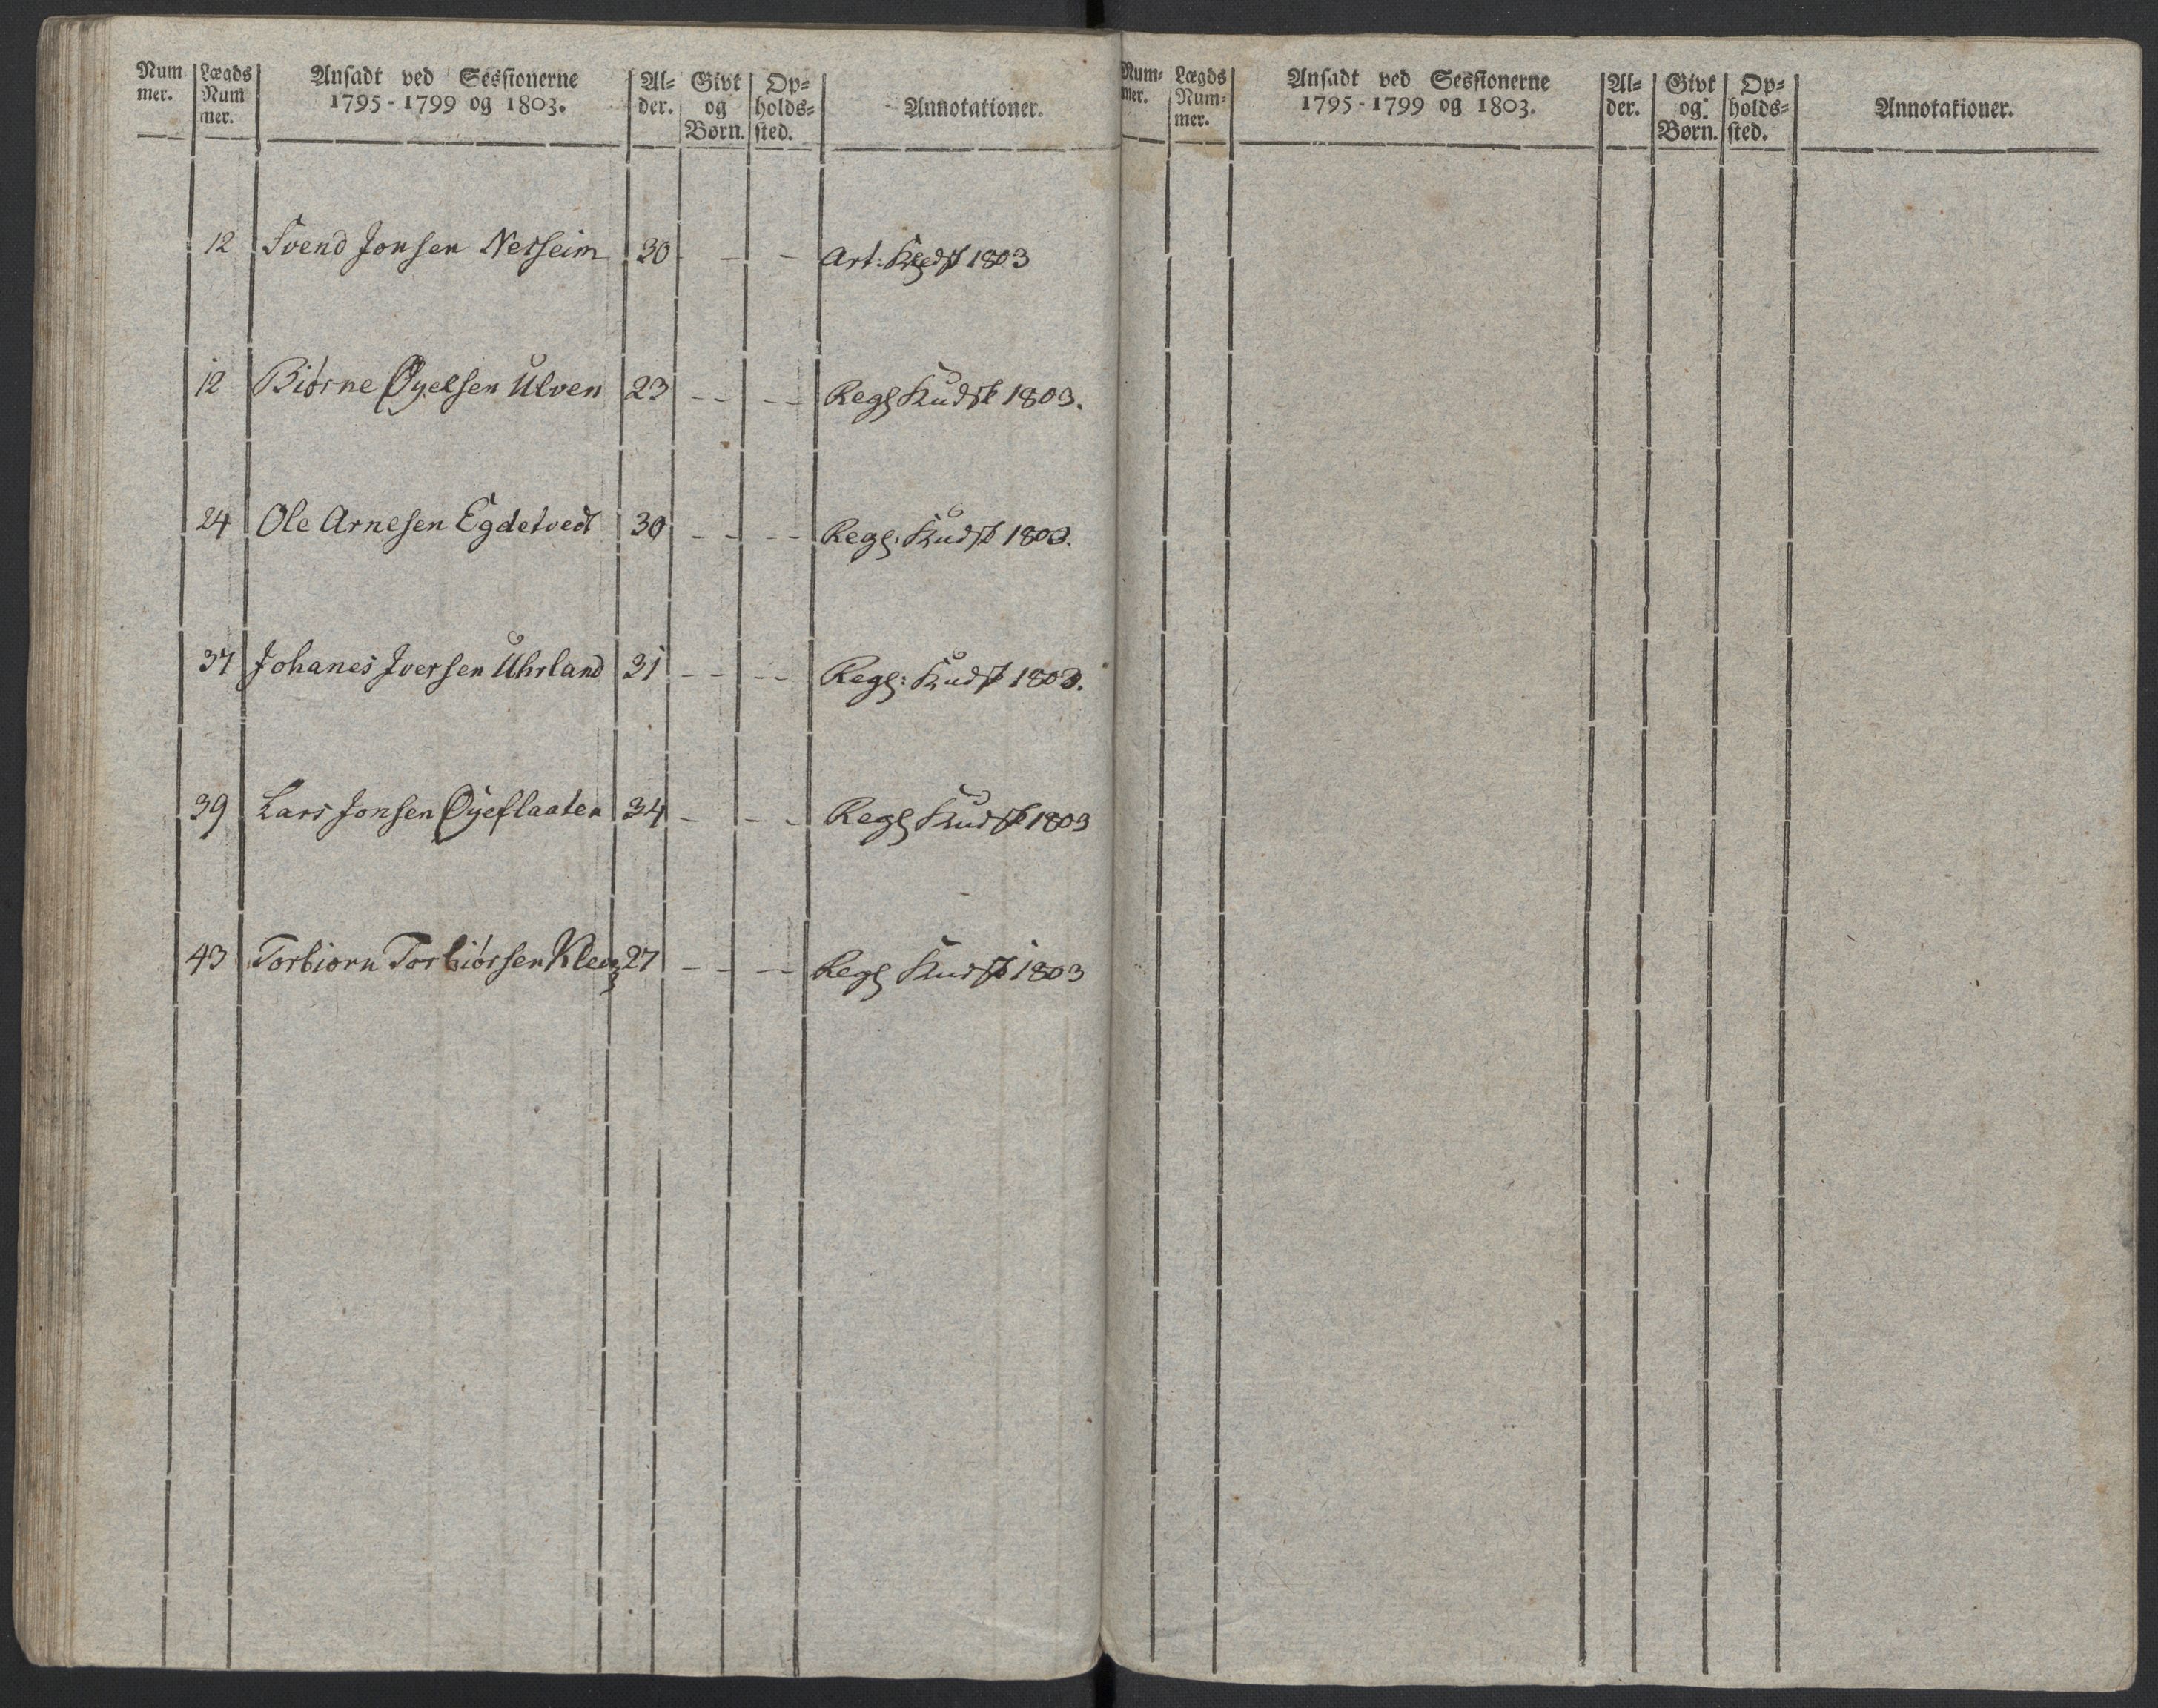 Num mer. | Lægds Num mer. | Ansadt ved Sessionerne 1795-1799 og 1803. | Al= der. | Givt og Børn. | Op= holds= sted. | Annotationer.
12 Svend Jonsen Nesheim 30 - - Art: 1803
12 Biørne Øyelsen Ulven 23 - - - - Regl Kudsk 1803.
24 Ole Arnesen Egdetvedt 30 - - - - Regl: Kudsk 1803.
37 Johanes Iversen Uhrland 31 - - - - Regl: Kudsk 1803.
39 Lars Jonsen Øyeflaaten 34 - - - Regl Kudsk 1803
43 Torbiørn Torbiørsen Kleiv 27 - - - - Regl Kudsk 1803
Num= mer. | Lægds Num= mer. | Ansadt ved Sessionerne 1795-1799 og 1803. | Al= der. | Givt og Børn. | Op= holds= sted. | Annotationer.